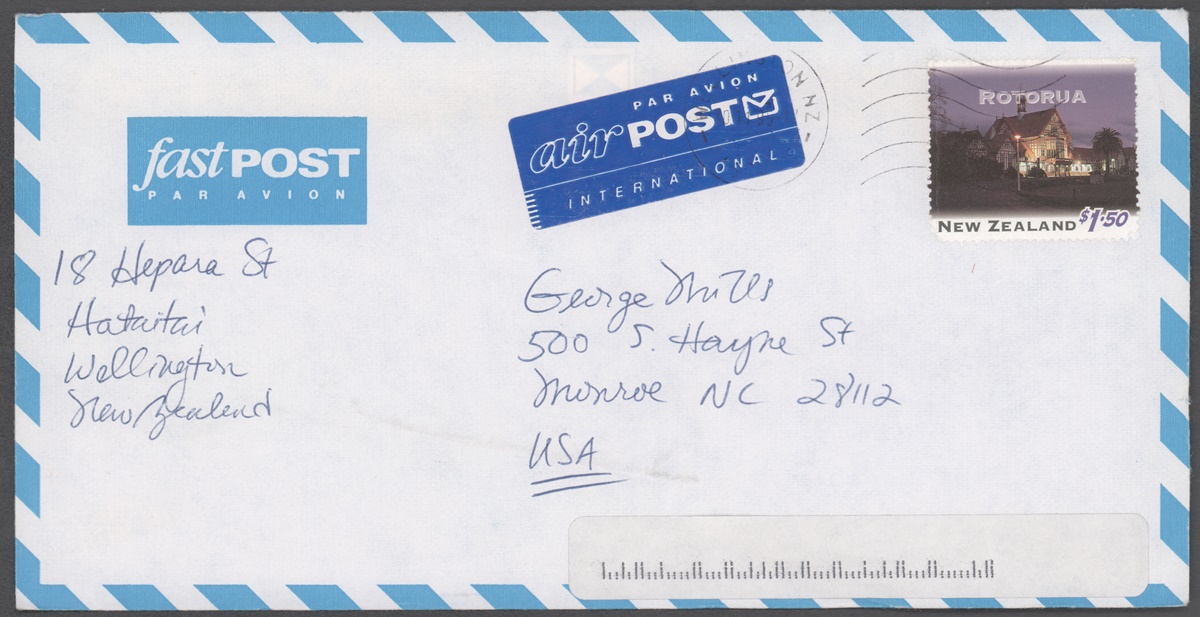 fastPOST
PAR AVION
PAR AVION
air POST
INTERNATIONAL
ON NZ
ROTORUA
NEW ZEALAND $1.50
18 Hepara St
Hataitai
Wellington
New Zealand
George Mills
500 S. Hayne St
Monroe NC 28112
USA